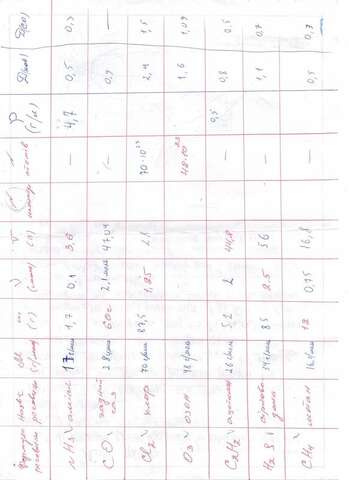 Формула речовини Назва речовини M (г/моль) m (г) ν (моль) V (л) N молекул N атомів ρ (г/л) D(пов)
NH3 аміак 17 г/моль 1,7 0,1 3,6 — 4,7 0,5
CO чадний газ 28 г/моль 60г 2,1 моль 47,04 — 0,9 —
Cl2 хлор 70 г/моль 87,5 1,25 28 70·10²³ 2,4 1,5
O3 озон 48 г/моль 48·10²³ 1,6 1,04
C2H2 ацетилен 26 г/моль 52 2 44,8 — 0,5 0,8 0,5
H2S сірководень 34 г/моль 85 2,5 56 — 1,1 0,7
CH4 метан 16 г/моль 12 0,75 16,8 — 0,5